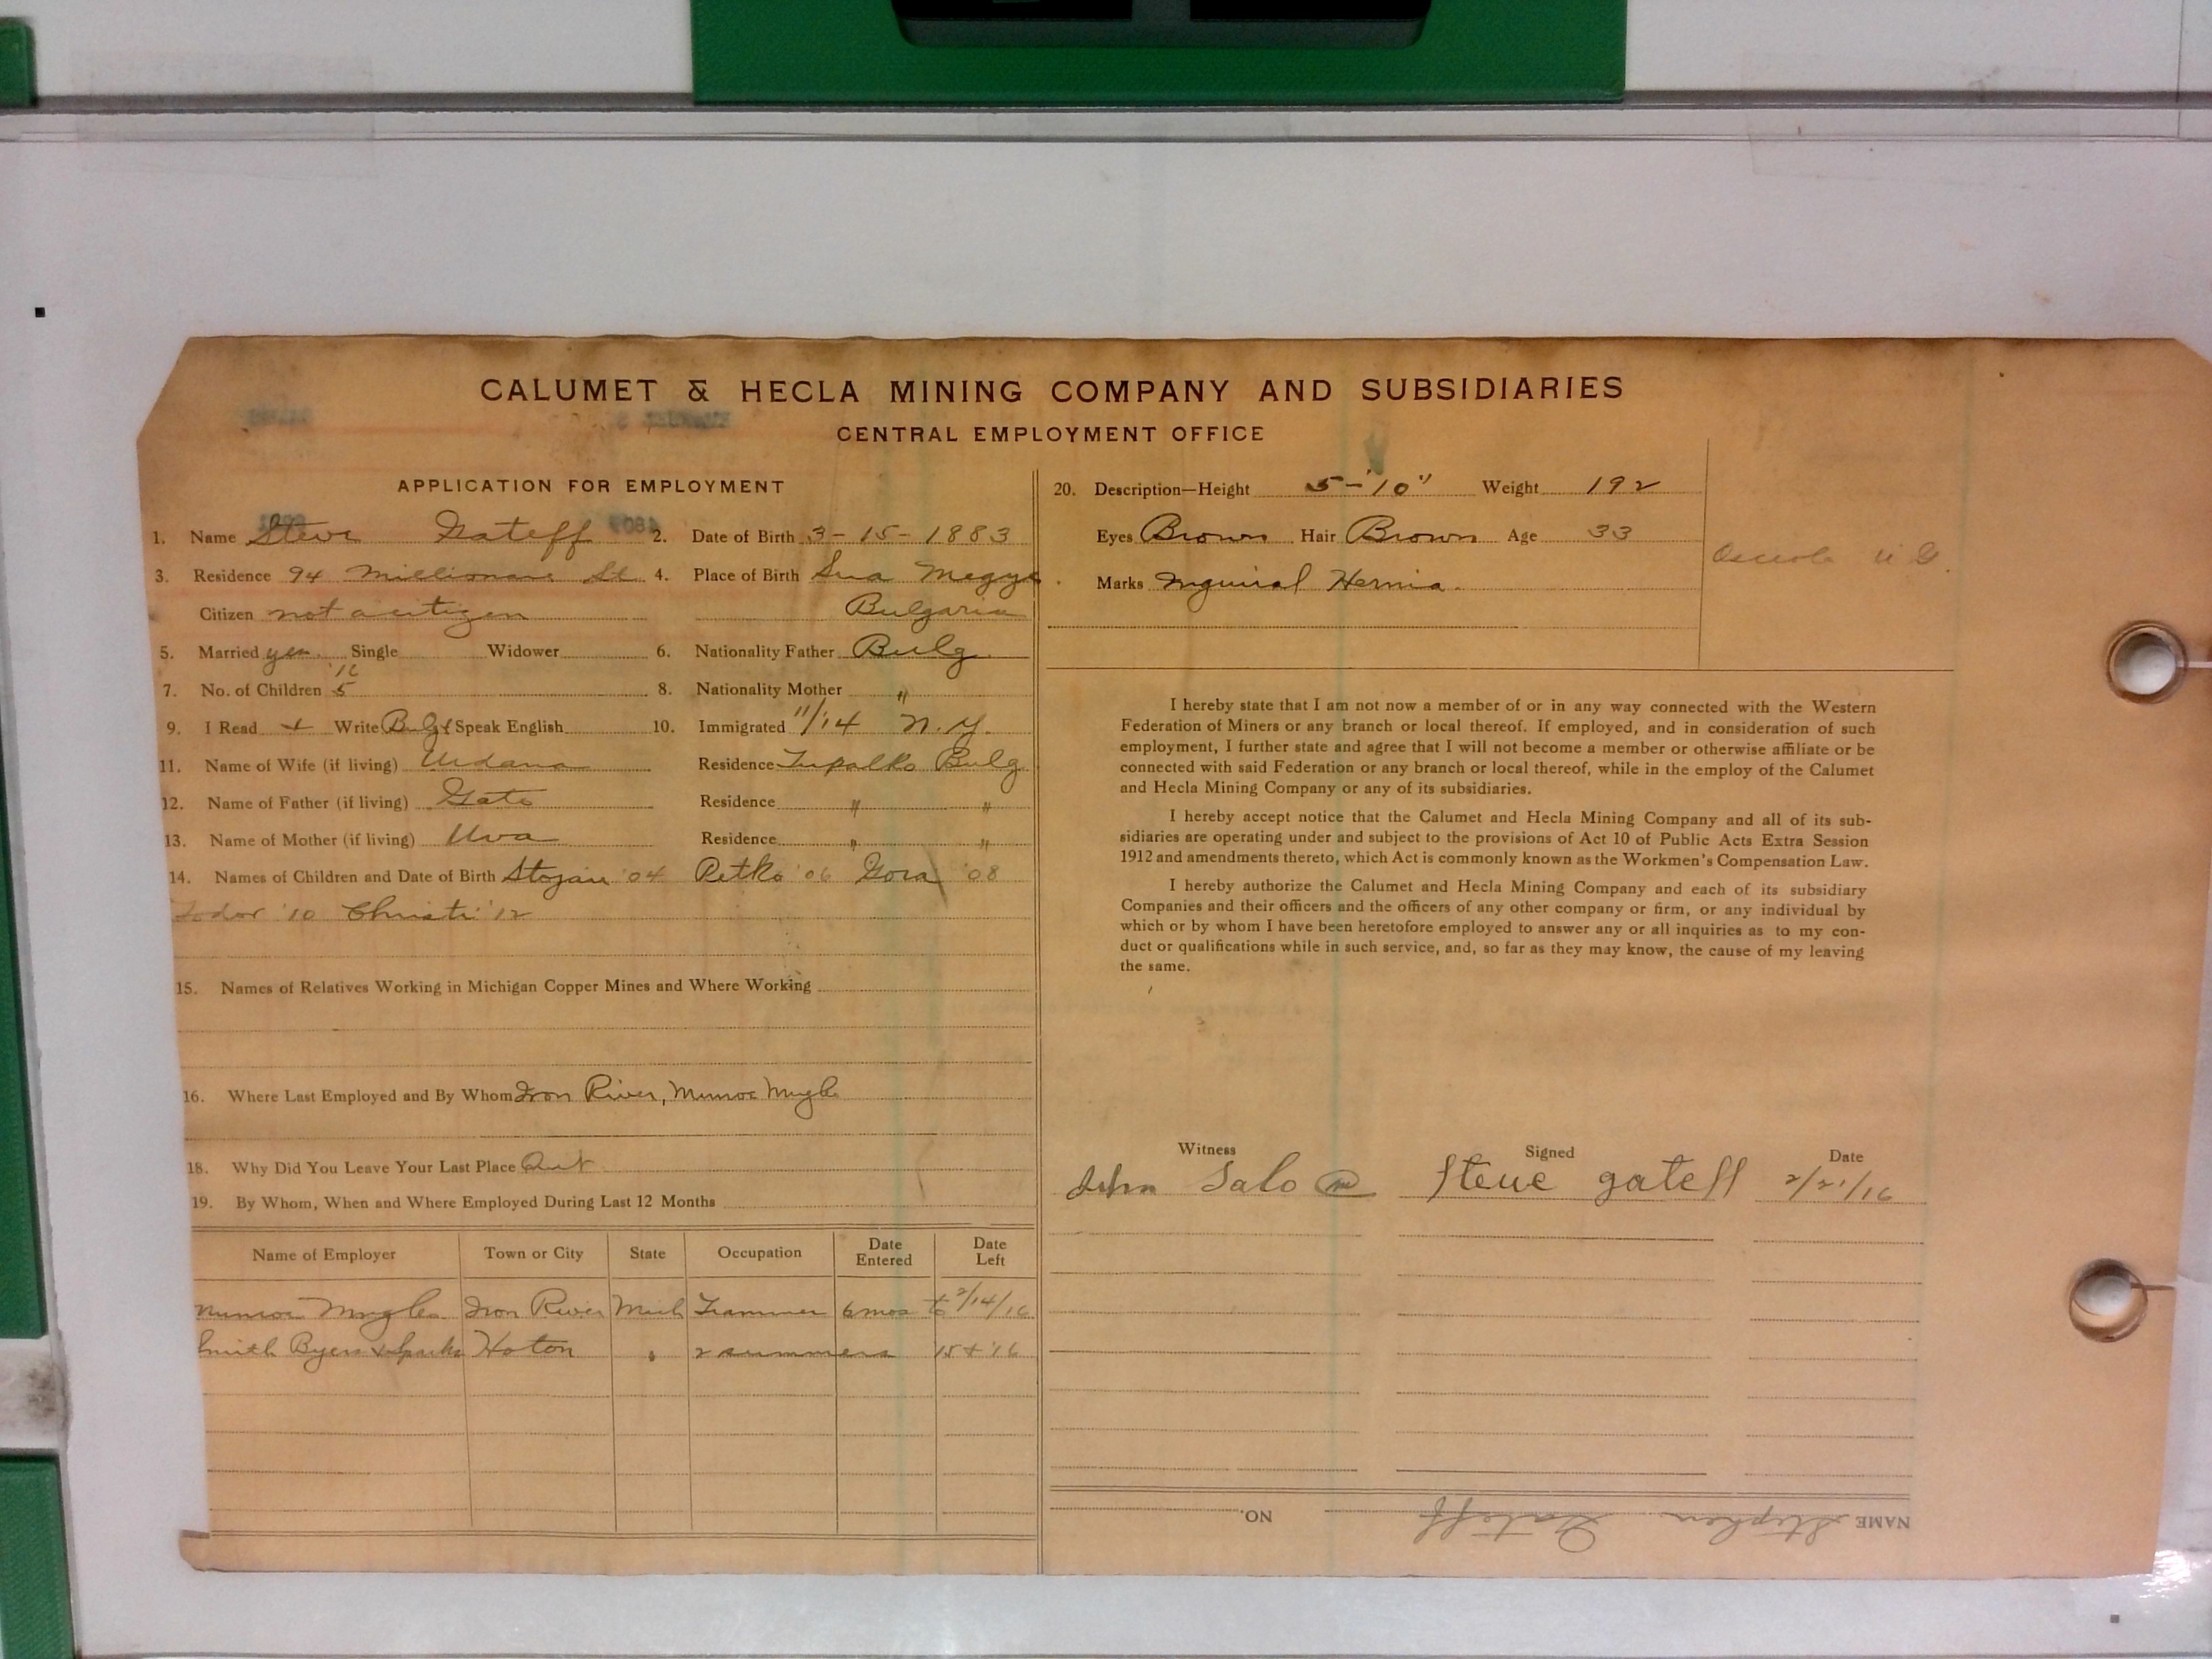 CALUMET & HECLA MINING COMPANY AND SUBSIDIARIES
CENTRAL EMPLOYMENT OFFICE
APPLICATION FOR EMPLOYMENT
1. Name Steve Gateff 2. Date of Birth 3-15-1883
3. Residence 94 Millionare St. 4. Place of Birth Sua Megya
Citizen not a citizen Bulgaria
5. Married yes. Single Widower 6. Nationality Father Bulg.
'16
7. No. of Children 5 8. Nationality Mother "
9. I Read + Write Bulg & Speak English 10. Immigrated 11/14 N.Y.
11. Name of Wife (if living) Urdana Residence Tupalko Bulg.
12. Name of Father (if living) Gato Residence " "
13. Name of Mother (if living) Uva Residence " "
14. Names of Children and Date of Birth Stojan '04 Petko '06 Gora '08
Todor '10 Christi '12
15. Names of Relatives Working in Michigan Copper Mines and Where Working
16. Where Last Employed and By Whom Iron River, Munroe
18. Why Did You Leave Your Last Place Quit
19. By Whom, When and Where Employed During Last 12 Months
Name of Employer Town or City State Occupation Date Entered Date Left
Munroe Iron River Mich Trammer 6 mos to 2/14/16
Smith Byers & Sparks Hoton " 2 summers 15 & '16
20. Description—Height 5-'10" Weight 192
Eyes Brown Hair Brown Age 33
Marks Inguinal Hernia.
Osceola U G.
I hereby state that I am not now a member of or in any way connected with the Western
Federation of Miners or any branch or local thereof. If employed, and in consideration of such
employment, I further state and agree that I will not become a member or otherwise affiliate or be
connected with said Federation or any branch or local thereof, while in the employ of the Calumet
and Hecla Mining Company or any of its subsidiaries.
I hereby accept notice that the Calumet and Hecla Mining Company and all of its sub-
sidiaries are operating under and subject to the provisions of Act 10 of Public Acts Extra Session
1912 and amendments thereto, which Act is commonly known as the Workmen's Compensation Law.
I hereby authorize the Calumet and Hecla Mining Company and each of its subsidiary
Companies and their officers and the officers of any other company or firm, or any individual by
which or by whom I have been heretofore employed to answer any or all inquiries as to my con-
duct or qualifications while in such service, and, so far as they may know, the cause of my leaving
the same.
Witness Signed Date
John Salo Steve gateff 2/21/16
NAME Stephen Gateff NO.